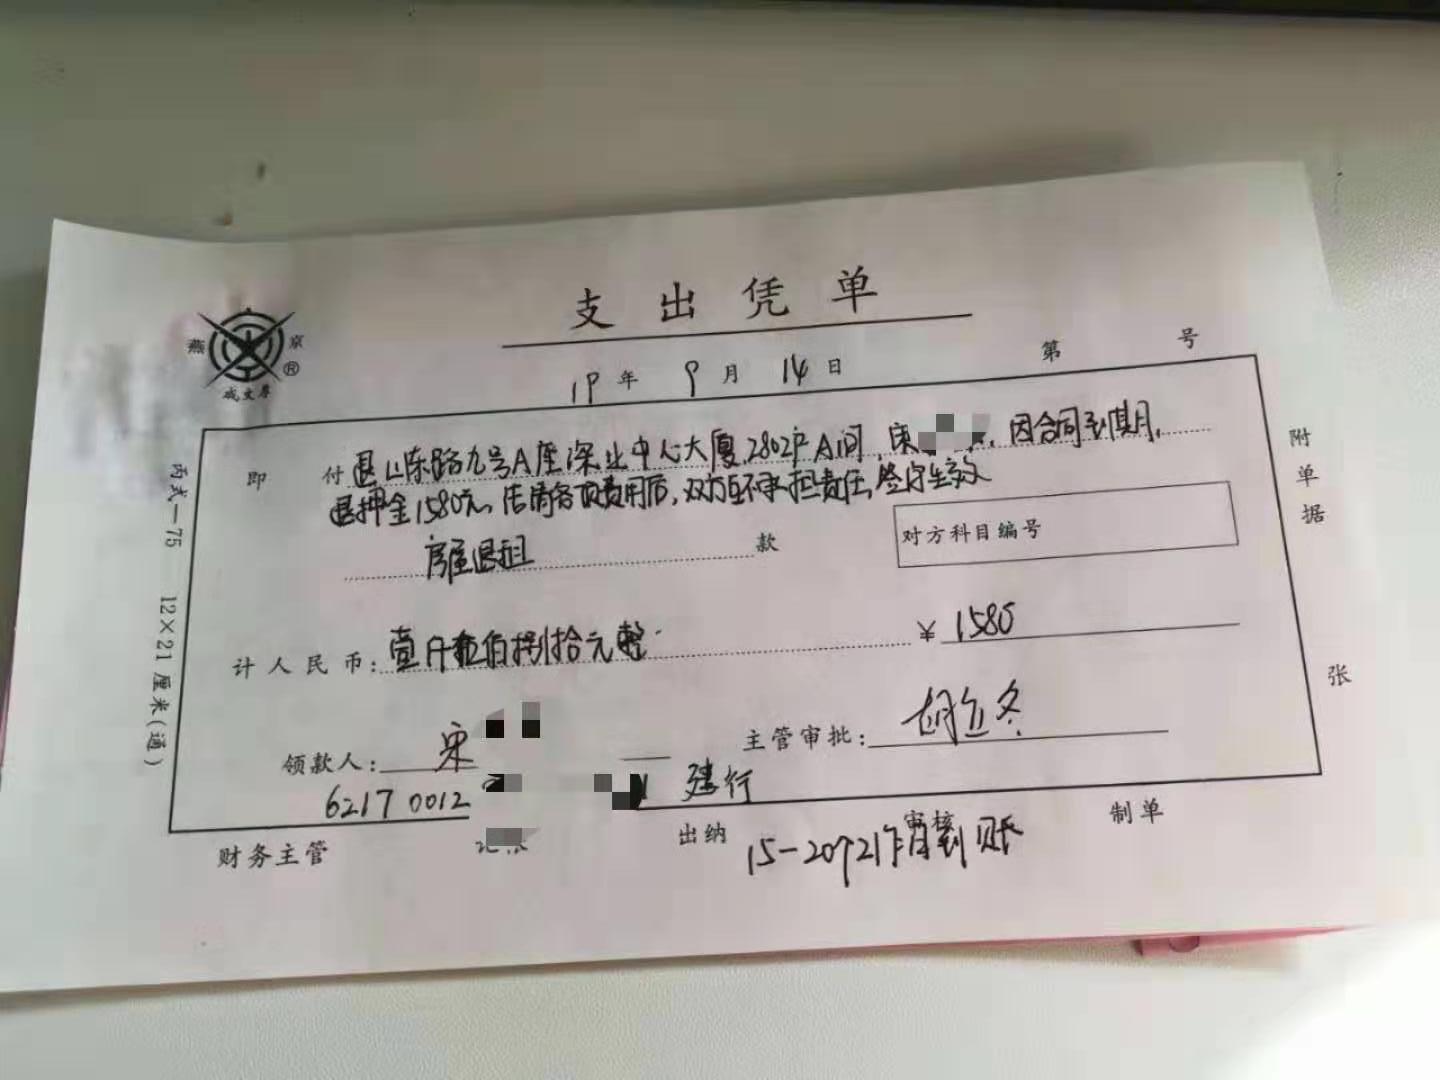 支出凭单
燕 京 ®
成文厚
19年 9月 14日 第 号
即 付 退山东路九号A座深业中心大厦2802户A间,宋 ,因合同到期,
退押金1580元。结清各项费用后,双方互不承担责任,签字生效
房屋退租 款
对方科目编号
计人民币: 壹仟伍佰捌拾元整 ¥ 1580
领款人: 宋 主管审批:
6217 0012 建行
财务主管 出纳 审核 制单
15-20个工作日到账
附单据 张
丙式-75 12×21厘米(通)